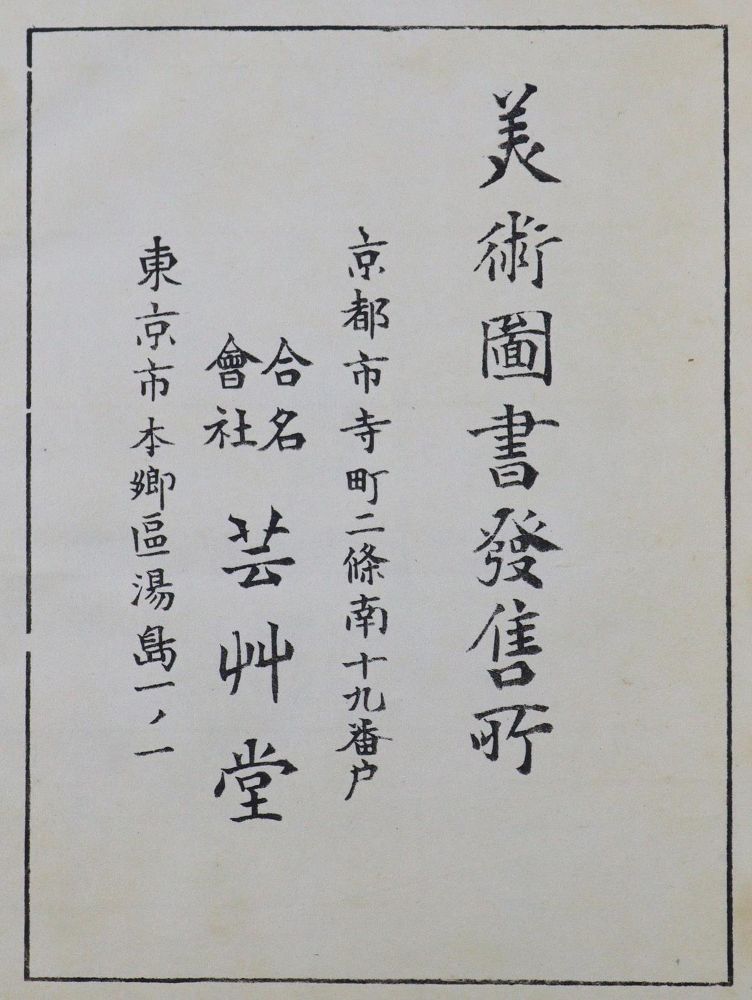 美術圖書發售所
京都市寺町二條南十九番户
合名會社 芸艸堂
東京市本鄉區湯島一ノ一